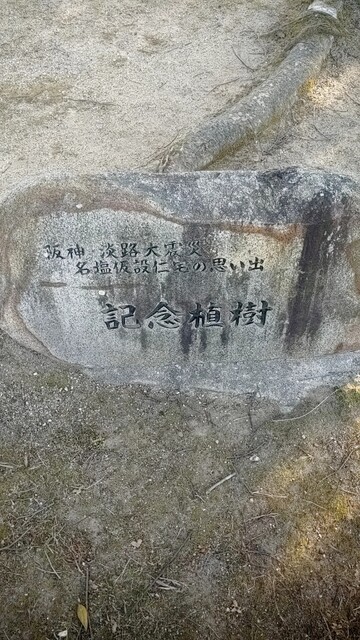 阪神・淡路大震災
名塩仮設住宅の思い出
記念植樹